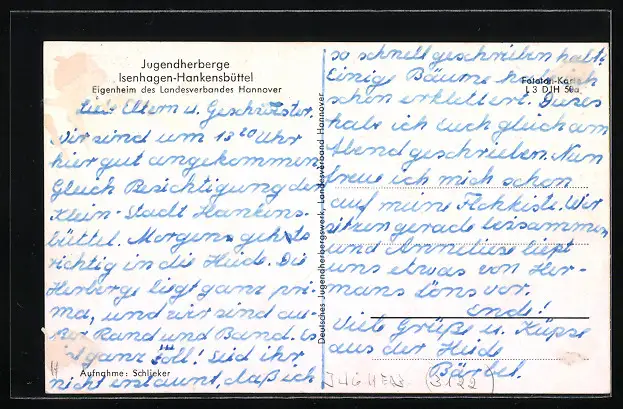 Jugendherberge
Isenhagen-Hankensbüttel
Eigenheim des Landesverbandes Hannover
Liebe Eltern u. Geschwister.
Wir sind um 13 20 Uhr
hier gut angekommen.
Gleich Besichtigung der
Klein-Stadt Hankens-
büttel. Morgens geht's
richtig in die Heide. Die
Herberge liegt ganz pri-
ma, und wir sind au-
ßer Rand und Band. Es
ist ganz toll! Seid ihr
nicht erstaunt, daß ich
Aufnahme: Schlieker
Deutsches Jugendherbergswerk, Landesverband Hannover
so schnell geschrieben habe.
Einige Bäume hab ich
schon erklettert. Dieses
habe ich Euch gleich am
Abend geschrieben. Nun
freue ich mich schon
auf meine Flohkiste. Wir
sitzen gerade beisammen
und Anneliese liest
uns etwas von Her-
manns Löns vor.
Ende!
Viele Grüße u. Küsse
aus der Heide
Bärbel.
Fototon-Karte
L 3 DJH
JUGHERB. (3122)